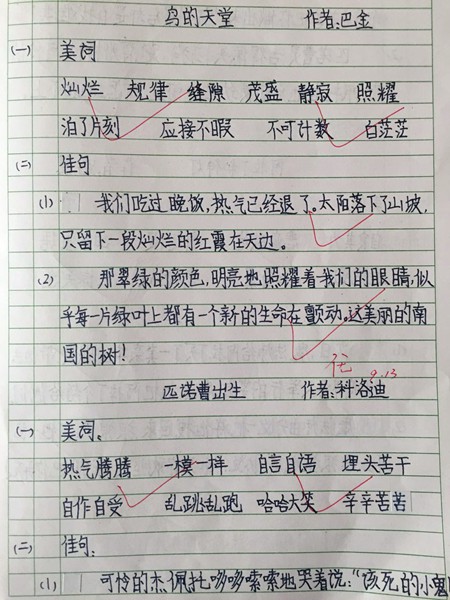 鸟的天堂 作者:巴金
(一) 美词
灿烂 规律 缝隙 茂盛 静寂 照耀
泊了片刻 应接不暇 不可计数 白茫茫
(二) 佳句
(1) 我们吃过晚饭,热气已经退了。太阳落下了山坡,
只留下一段灿烂的红霞在天边。
(2) 那翠绿的颜色,明亮地照耀着我们的眼睛,似
乎每一片绿叶上都有一个新的生命在颤动。这美丽的南
国的树!
优 9.13
匹诺曹出生 作者:科洛迪
(一) 美词。
热气腾腾 一模一样 自言自语 埋头苦干
自作自受 乱跳乱跑 哈哈大笑 辛辛苦苦
(二) 佳句:
(1) 可怜的杰佩托哆哆嗦嗦地哭着说:“该死的小鬼